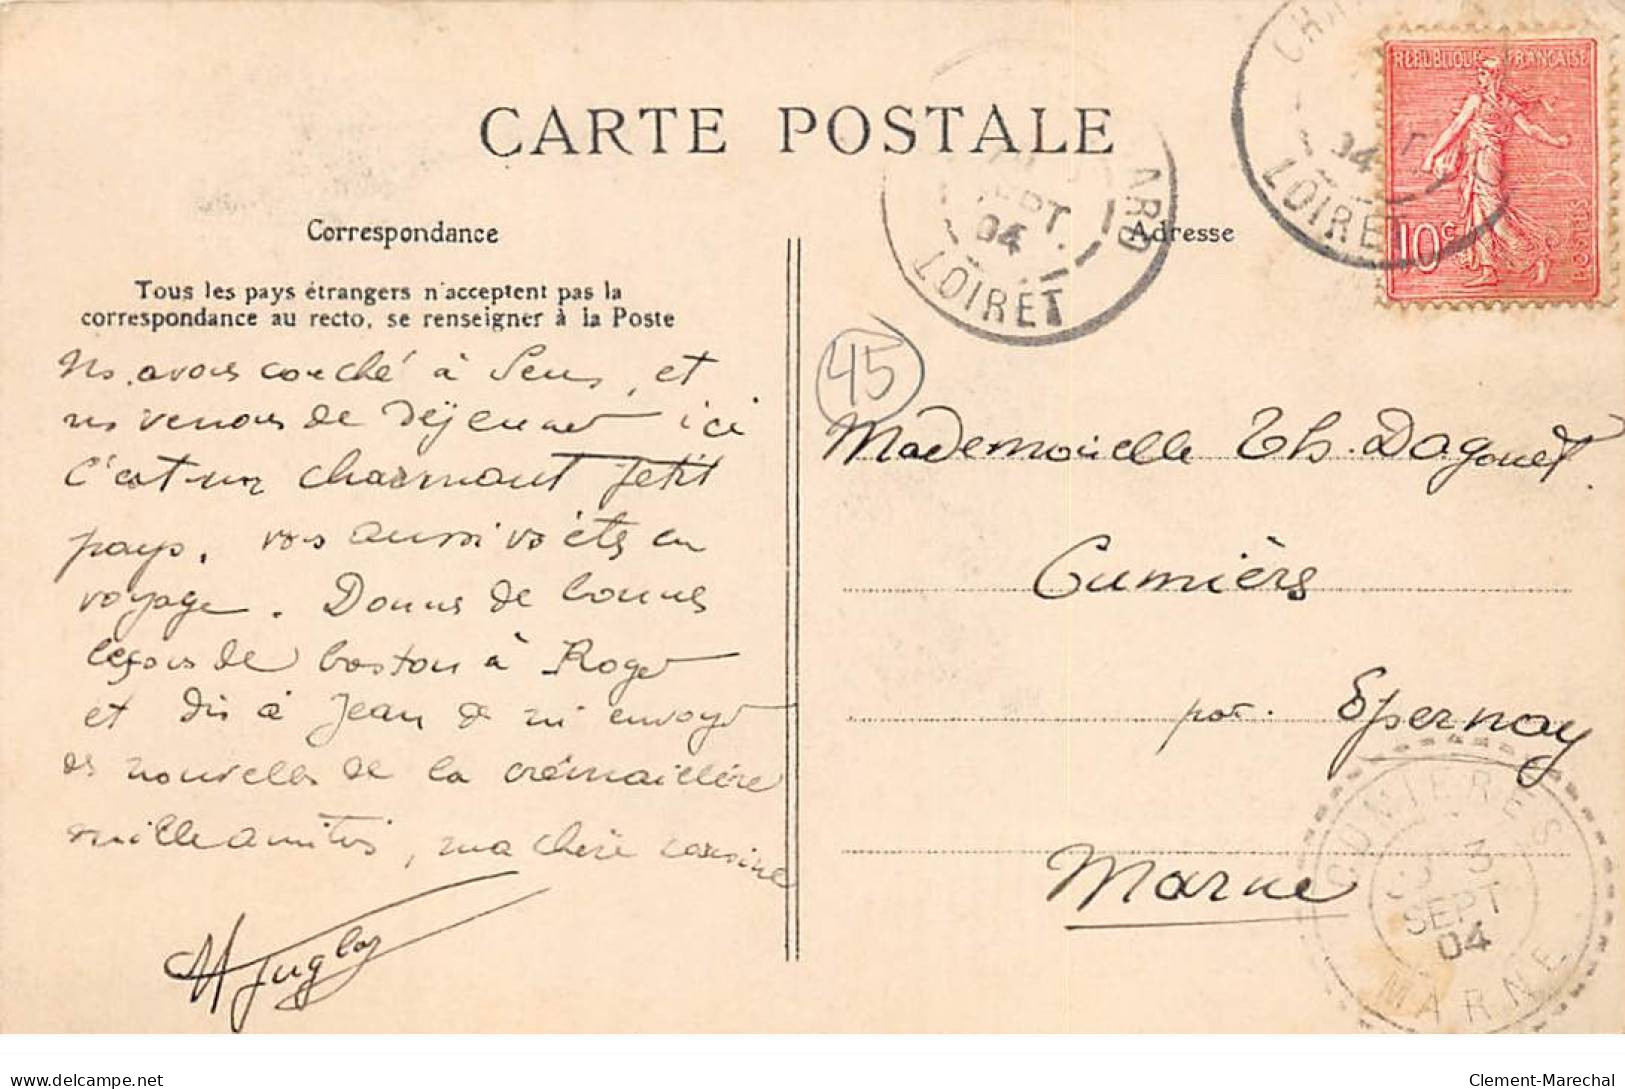 CARTE POSTALE
Correspondance
Tous les pays étrangers n'acceptent pas la
correspondance au recto, se renseigner à la Poste
Ns avons couché à Sens, et
ns venons de déjeuner ici
C'est un charmant petit
pays. vs aussi vs êtes en
voyage. Donne de bonnes
leçons de boston à Roger
et dis à Jean de m'envoyer
des nouvelles de la crémaillère
mille amitiés, ma chère cousine
Adresse
45
Mademoiselle Th. Dagonet
Cumières
par. Epernay
Marne
REPUBLIQUE FRANÇAISE
10c
POSTES
SEPT.
04
LOIRET
ARD
CHA
04
LOIRET
CUMIERES
3
SEPT
04
MARNE
www.delcampe.net
Clement-Marechal